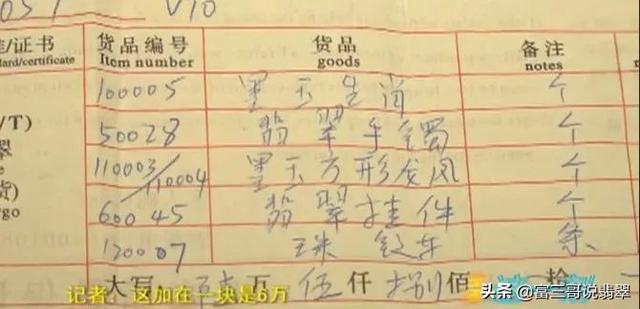 V10
证/证书 货品编号 货品 备注
dard/certificate Item number goods notes
100005 墨玉生肖 个
/T) 50028 翡翠手镯 个
翠 110003/110004 墨玉方形龙凤 个
货) 60045 翡翠挂件 个
rgo 120007 珠 链 条
大写: 万 伍仟 捌佰 拾
记者:这加在一块是6万
头条@富三哥说翡翠